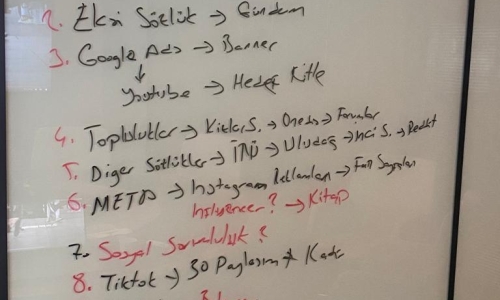 2. Ekşi Sözlük → Gündem
3. Google Ads → Banner
↓
Youtube → Hedef Kitle
4. Topluluklar → → → Forumlar
5. Diğer Sözlükler → İTÜ → Uludağ → İnci S. → Reddit
6. META → Instagram Reklamları → Fan Sayfaları
Influencer? → Kitap
7. Sosyal Sorumluluk?
8. Tiktok → 30 Paylaşım